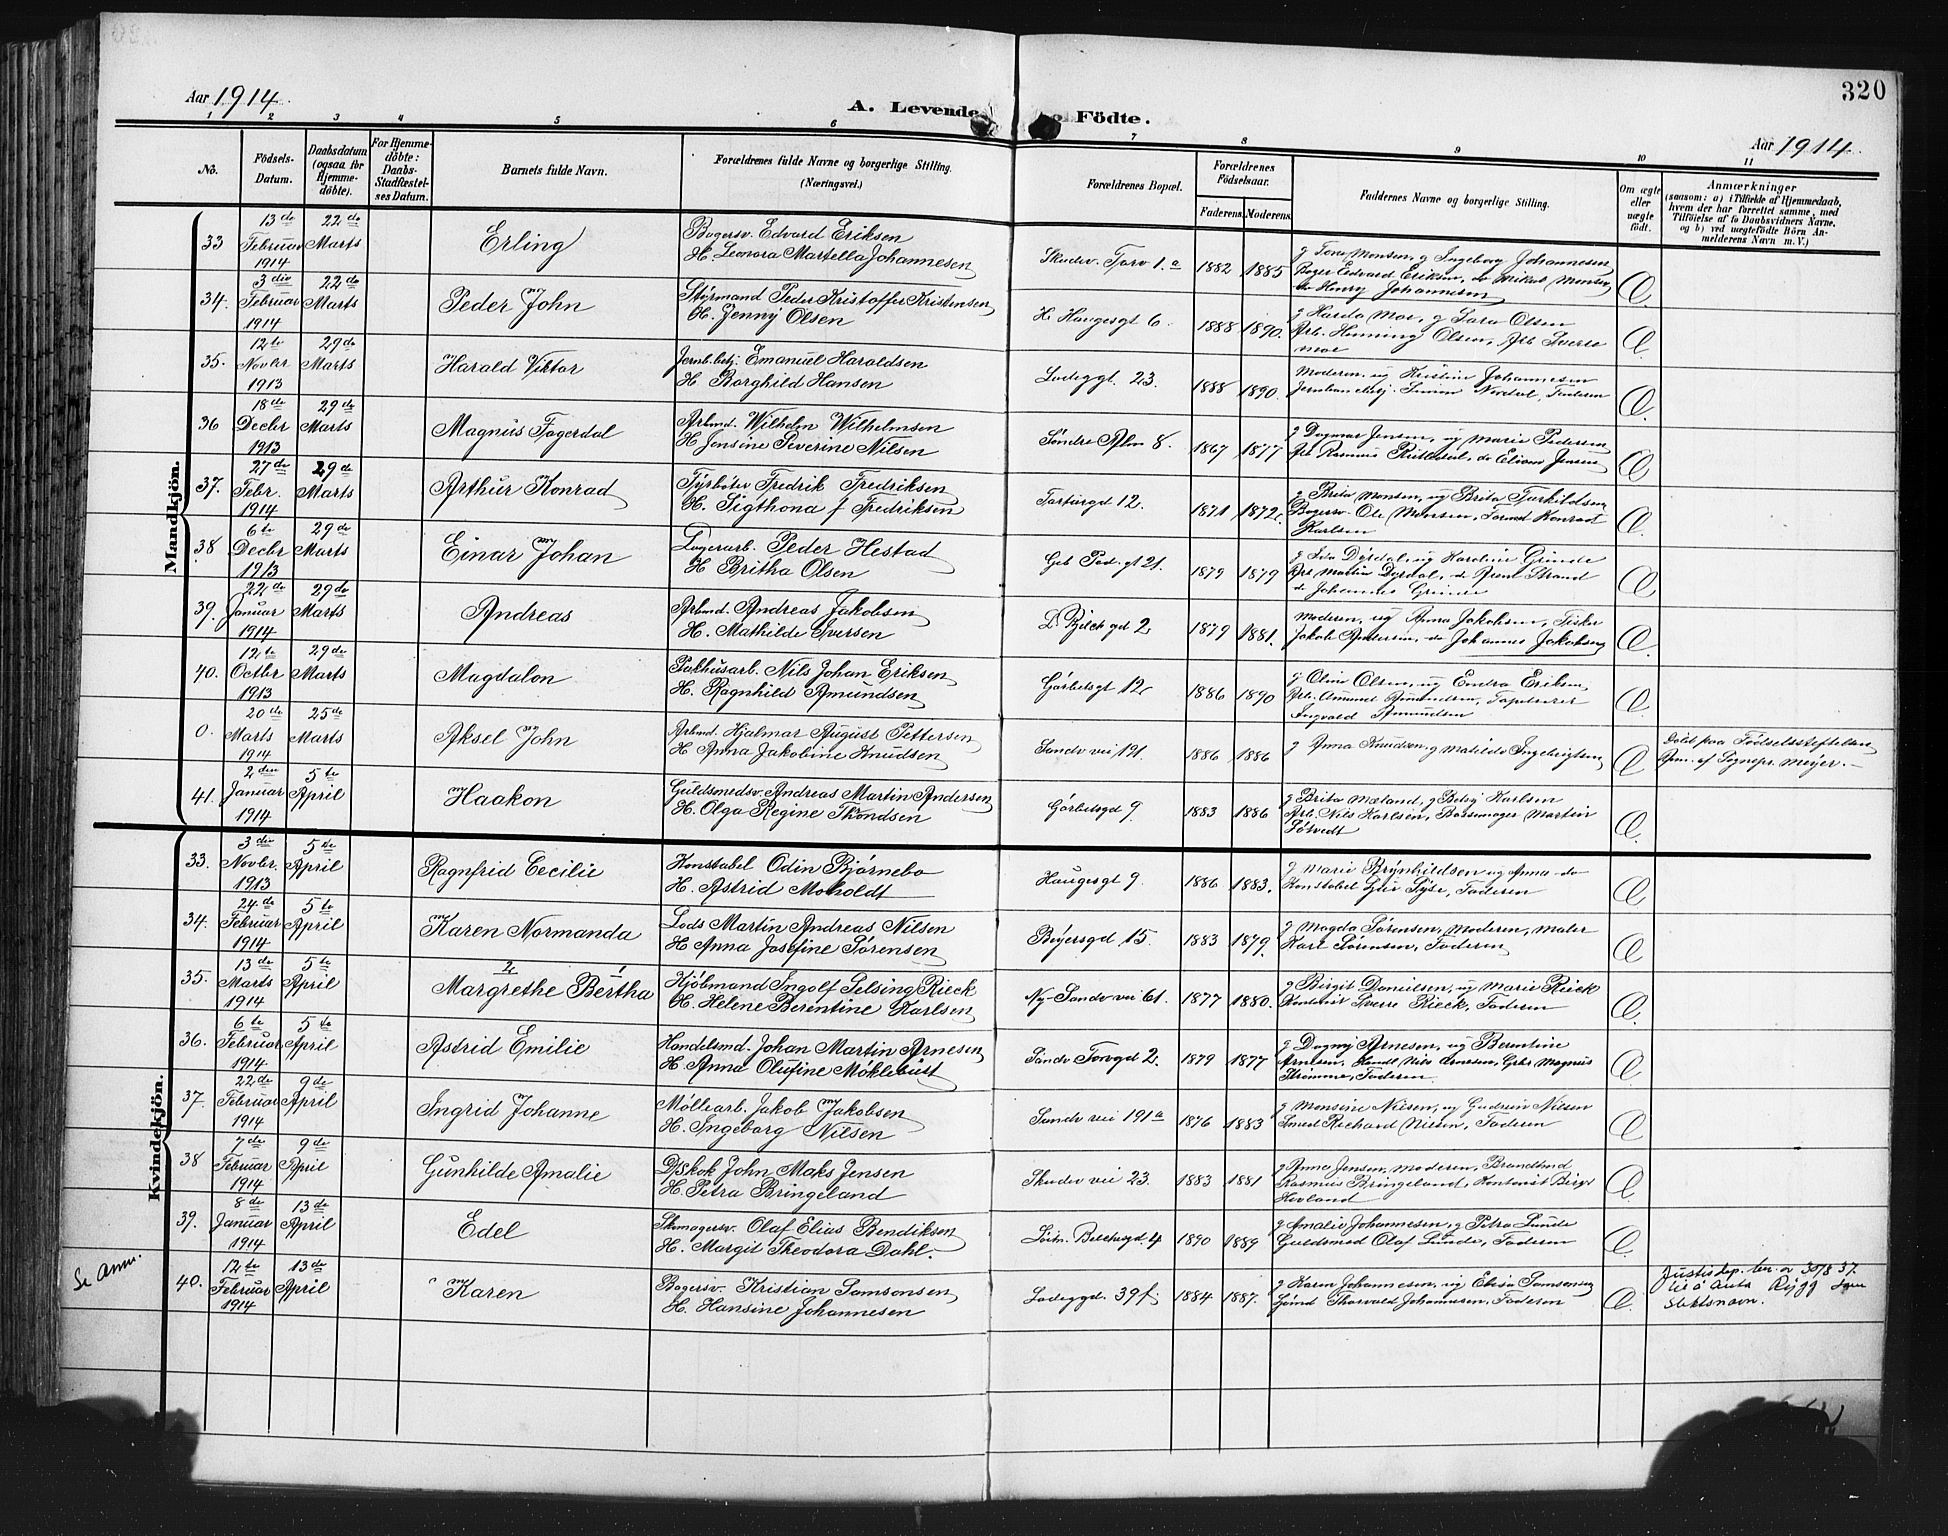 320
Aar 1914. A. Levende Födte. Aar 1914.
1 2 3 4 5 6 7 8 9 10 11
No.
Födsels-
Datum.
Daabsdatum
(ogsaa for
Hjemme-
döbte).
For Hjemme-
döbte:
Daabs-
Stadfæstel-
ses Datum.
Barnets fulde Navn.
Forældrenes fulde Navne og borgerlige Stilling.
(Næringsvei.)
Forældrenes Bopæl.
Forældrenes
Födselsaar.
Faderens. Moderens.
Faddernes Navne og borgerlige Stilling.
Om ægte
eller
uægte
födt.
Anmærkninger
(saasom: a) i Tilfælde af Hjemmedaab,
hvem der har forrettet samme, med
Tilföielse af to Daabsvidners Navne,
og b) ved uægtefödte Börn An-
melderens Navn m. V.)
Mandkjön.
33 13de Februar 1914 22de Marts Erling
Bogersv. Edvard Eriksen
H. Leonora Martella Johannesen
Skudev. Torv 1.a 1882 1885
g Tona Monsen, g Ingeborg Johannesen
Boger Edvard Eriksen, do Mikal Monsen
do Henry Johannesen
34. 3die Februar 1914 22de Marts Peder John
Styrmand Peder Kristoffer Kristensen
H. Jenny Olsen
H Haugesgt 6. 1888 1890.
g Harda Moe, g Sara Olsen
Arb. Henning Olsen, Arb Sverre
Moe
35. 12te Novbr 1913 29de Marts Harald Viktor
Jernb.betj. Emanuel Haraldsen
H Borghild Hansen
Lodeggt. 23. 1888 1890.
Moderen, ug Kristine Johannesen
36 18de Decbr 1913 29de Marts Magnus Fagerdal
Arbmd. Wilhelm Wilhelmsen
H Jensine Severine Nilsen
Söndre Alm 8. 1867 1877
g Dagmar Jensen, ug Marie Pedersen
37. 27de Febr. 1914 29de Marts Arthur Konrad
Fyrböter Fredrik Fredriksen
H. Sigthona f Fredriksen
Tartargd 12. 1871 1872.
g Brita Monsen, ug Brita Torkildsen
Bogersv. Ole Monsen, Formd Konrad
Karlsen
38 6te Decbr 1913 29de Marts Einar Johan
Lagerarb. Peder Hestad
H Britha Olsen
Geb Pod. gt 21. 1879 1879
g Ida Dyrdal, ug Karoline Grinde
Arb Martin Dyrdal, do Arent Strand
do Johannes Grinde
39. 22de Januar 1914 29de Marts Andreas
Arbmd. Andreas Jakobsen
H. Mathilde Iversen
L. Bjelch gd 2 1879 1881.
Moderen, ug Anna Jakobsen, Fisker
Jakob Andersen, do Johannes Jakobsen
40. 12te Octbr 1913 29de Marts Magdalon
Pakhusarb. Nils Johan Eriksen
H. Ragnhild Amundsen
Görbelsgt 12 1886 1890
g Olina Olsen, ug Endra Eriksen
Arb. Amund Amundsen, Tapetserer
Ingvald Amundsen
0. 20de Marts 1914 25de Marts Aksel John
Arbmd. Hjalmar August Pettersen
H Anna Jakobine Knudsen
Sandv vei 191. 1886 1886
g Anna Knudsen, g Matilde Ingebrigtsen
Döbt paa Födselsstiftelsen
Anm. af Sognepr. Meijer.
41. 2den Januar 1914 5te April Haakon
Guldsmedsv. Andreas Martin Andersen
H. Olga Regine Thondsen
Görbelsgd 9 1883 1886
g Brita Mæland, g Betsy Karlsen
Arb. Nils Karlsen, Börsemager Martin
Sötvedt
Kvindekjön.
33. 3die Novbr. 1913 5te April Ragnfrid Cecilie
Konstabel Odin Björnebo
H. Astrid Moholdt
Haugesgt 9. 1886 1883.
g Marie Brynhildsen, ug Anna do
34. 24de Februar 1914 5te April Karen Normanda
Lods Martin Andreas Nilsen
H Anna Josefine Sörensen
Böyersgd 15. 1883 1879.
g Magda Sörensen, Moderen, Maler
Karl Sörensen, Faderen
35. 13de Marts 1914 5te April Margrethe Bertha
2 1
Kjöbmand Ingolf Selsing Rieck
H. Helene Berentine Karlsen
Ny-Sandv vei 61. 1877 1880.
g Birgit Danielsen, ug Marie Rieck
Kontorist Sverre Rieck, Faderen
36. 6te Februar 1914 5te April Astrid Emilie
Handelsmd. Johan Martin Arnesen
H. Anna Olufine Möklebust
Sandv Torvgd 2. 1879 1877
g Dagny Arnesen, ug Berentine
Arnesen, Handl Nils Arnesen, Grbr Magnus
Krömme, Faderen
37. 22de Februar 1914 9de April Ingrid Johanne
Möllearb. Jakob Jakobsen
H. Ingeborg Nilsen
Sandv vei 191a 1876 1883
g Monsine Nilsen, ug Gudrun Nilsen
Smed Richard Nilsen, Faderen
38 7de Februar 1914 9de April Gunhilde Amalie
D/Skok John Maks Jensen
H. Petra Bringeland
Skudev vei 23. 1883 1881
g Anna Jensen, Moderen, Brandkmd
Rasmus Bringeland, Kontorist Birger
Hovland
39. 8de Januar 1914 13de April Edel
Skomagersv. Olaf Elias Bendiksen
H. Margit Theodora Dahl.
1890 1889
g Amalie Johannesen, g Petra Lunde
Guldsmed Olaf Lunde, Faderen
Se Anm.
40. 12te Februar 1914 13de April Karen
Bogersv Kristian Samsonsen
H. Hansine Johannesen
Lodeggd. 39 f. 1884 1887.
g Karen Johannesen, ug Elisa Samsonsen
Thorvald Johannesen, Faderen
Justisdep. bev. av 30/8 37.
til å anta Rygg som
slektsnavn.